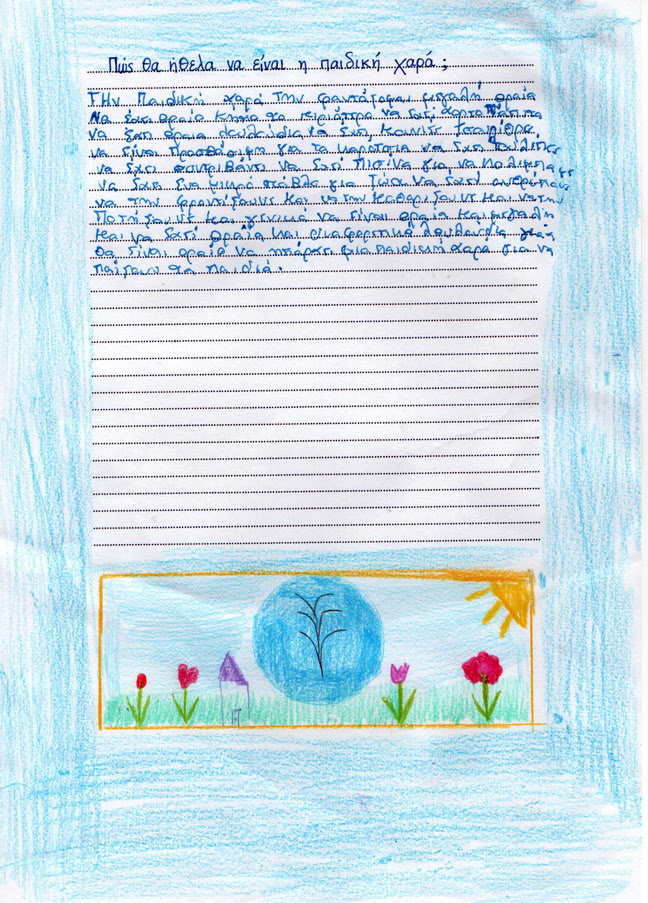 Πώς θα ήθελα να είναι η παιδική χαρά;
Την Παιδική χαρά την φαντάζομαι μεγάλη ωραία
Να έχει ωραία κηπια το κιριότερο να έχει χορτο
να έχει ωραια λουλούδια, να έχει κουνιες τσουλίθρα,
να είναι προσβάσιμη για τα καροτσια να έχει τουλιπες
να έχει σιντριβάνι να έχει Πισίνα για να κολιμπαμε
να έχει ένα μικρό στάβλο για ζώα να έχει ανθρώπους
να την φροντίζουνε και να την καθαρίζουνε και να την
Ποτίζουνε και γενικά να είναι ωραία και μεγαλη
και να έχει ωραία και διαφορετικά λουλουδια γιατι
θα είναι ωραία να υπάρχει μια παιδικη χαρα για να
παίζουν τα παιδιά.